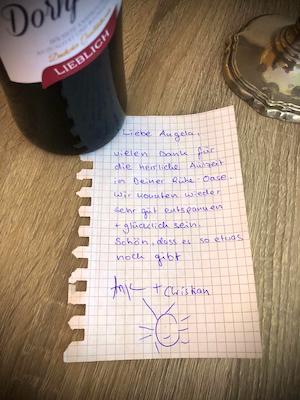 Dorn
LIEBLICH
Liebe Angela,
vielen Dank für
die herrliche Auszeit
in Deiner Ruhe-Oase.
Wir konnten wieder
sehr gut entspannen
+ glücklich sein.
Schön, dass es so etwas
noch gibt
+ Christian